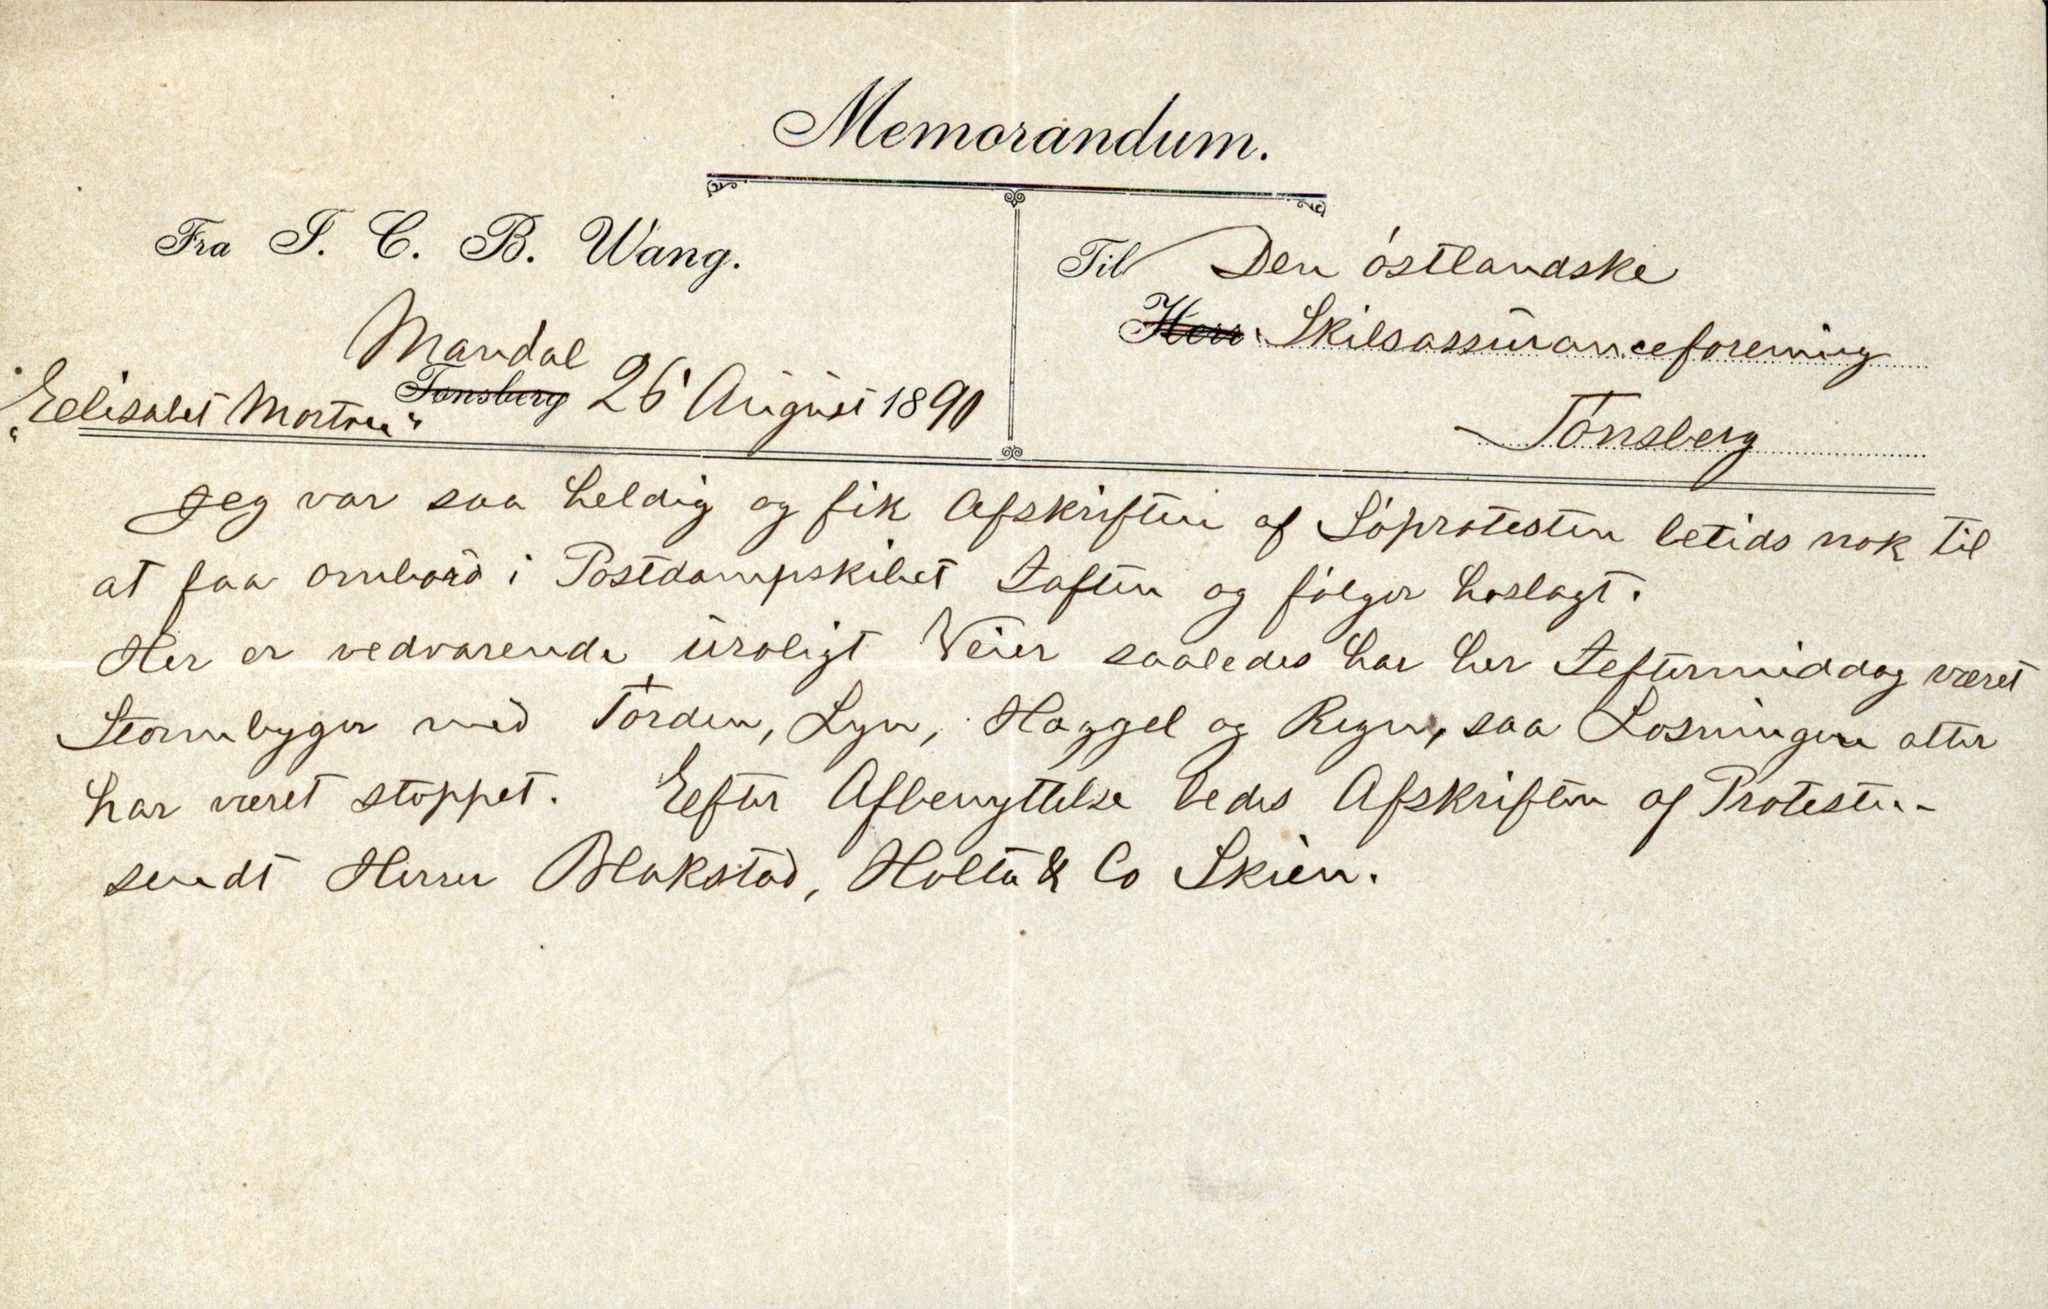 Memorandum.
Fra I. C. B. Wang.
Til Den østlandske
Herr Skibsassuranceforening
Mandal
Tønsberg 26 August 1890
Tønsberg
"Elisabet Morton"
Jeg var saa heldig og fik Afskriften af Søprotesten betids nok til
at faa ombord i Postdampskibet Iaften og følger hoslagt.
Her er vedvarende uroligt Veier saaledes har her Ieftermiddag været
Stormbyger med Torden, Lyn, Haggel og Regn, saa Losningen atter
har været stoppet. Efter Afbenyttelse bedes Afskriften af Protesten
sendt Herrer Blakstad, Holta & Co Skien.